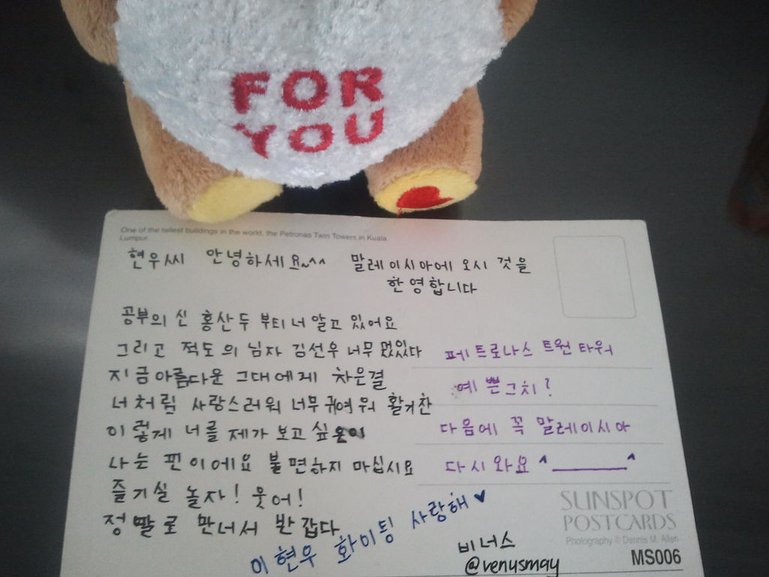 FOR
YOU
One of the tallest buildings in the world, the Petronas Twin Towers in Kuala
Lumpur
현우씨 안녕하세요~^^ 말레이시아에 오시 것을
한영합니다
공부의 신 홍산두 부티 너 알고 있어요
그리고 적도의 님자 김선우 너무 멌있다
지금 아름다운 그대에게 차은결
너처럼 사랑스러워 너무 귀여워 활기찬
이렇게 너를 제가 보고
나는 핀이에요 불면하지 마십시요
즐기실 놀자! 웃어!
정딸로 만너서 반갑다
페트로나스 트윈 타워
예쁜그치?
다음에 꼭 말레이시아
다시 와요 ^______^
이현우 화이팅 사랑해 ♥
비너스
@venusmay
SUNSPOT
POSTCARDS
Photography © Dennis M. Allen
MS006